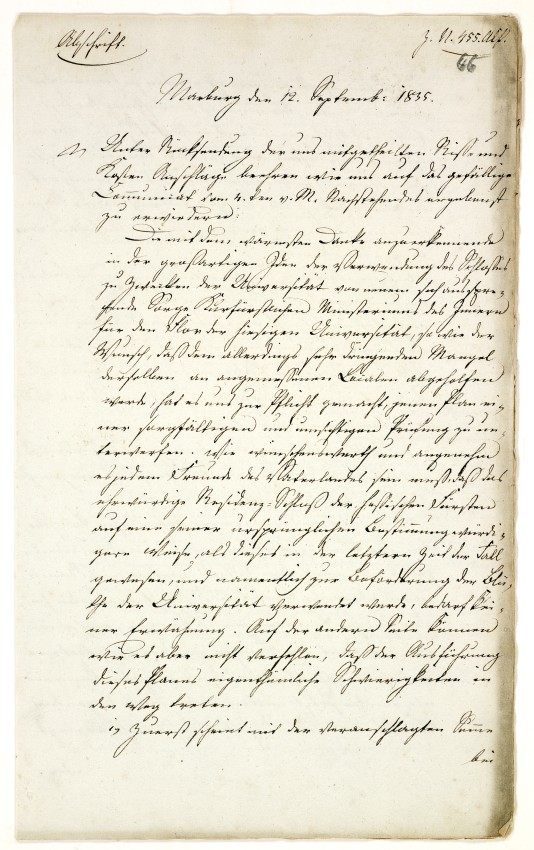 Abschrift.
66
Marburg den 12. Septemb: 1835.
Unter Rücksendung der uns mitgetheilten Risse und
Kosten Anschläge beehren wir uns auf das gefällige
Communicat vom 4. ten v. M. Nachstehendes ergebenst
zu erwiedern:
Die mit dem wärmsten Danke anzuerkennende
in der großartigen Idee der Verwendung des Schlosses
zu Zwecken der Universität von neuem sich ausspre-
chende Sorge Kurfürstlichen Ministeriums des Innern
für den Flor der hiesigen Universität, so wie der
Wunsch, daß dem allerdings sehr dringenden Mangel
derselben an angemessenen Localen abgeholfen
werde, hat es uns zur Pflicht gemacht, jenen Plan ei-
ner sorgfältigen und umsichtigen Prüfung zu un-
terwerfen. Wie wünschenswerth und angenehm
es jedem Freunde des Vaterlandes sein muß, daß das
ehrwürdige Residenz-Schloß der hessischen Fürsten
auf eine seiner ursprünglichen Bestimmung würdi-
gere Weise, als dieses in der letztern Zeit der Fall
gewesen, und namentlich zur Beförderung der Blü-
the der Universität verwendet werde, bedarf kei-
ner Erwähnung. Auf der andern Seite können
wir es aber nicht verhehlen, daß der Ausführung
dieses Planes eigenthümliche Schwierigkeiten in
den Weg treten.
1, Zuerst scheint mit der veranschlagten Summe
bei